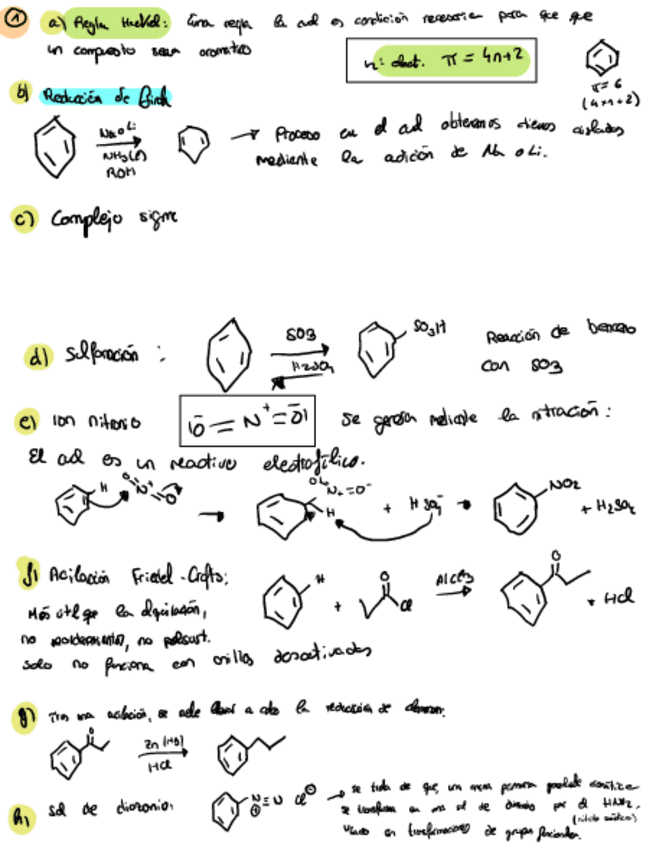 ① a) Regla Huckel: Una regla la cual es condición necesaria para que que
un compuesto sea aromatico
n: elect. π = 4n+2
π = 6
(4×1+2)
b) Reducción de Birch
Na o Li
NH3(l)
ROH
→ Proceso en el cual obtenemos dienos aislados
mediante la adición de Na o Li.
c) Complejo sigma
d) Sulfonación :
SO3
H2SO4
SO3H
Reacción de benceno
con SO3
e) ion nitronio
O=N+=O
Se genera mediante la nitración:
El cual es un reactivo electrofílico.
H
O=N+=O
N+=O-
H
+ HSO4-
NO2
+ H2SO4
f) Acilación Friedel-Crafts:
Más útil que la alquilación,
no reordenamientos, no polisust.
solo no funciona con anillos desactivados
H
+
O
Cl
AlCl3
O
+ HCl
g) Tras una acilación, se suele llevar a cabo la reducción de clemmensen.
O
Zn (Hg)
HCl
h) sal de diazonio:
N≡N Cl⊖
⊕
→ se trata de que, una amina primaria aromática
se transforma en una sal de diazonio por el HNO2.
en transformaciones de grupos funcionales.